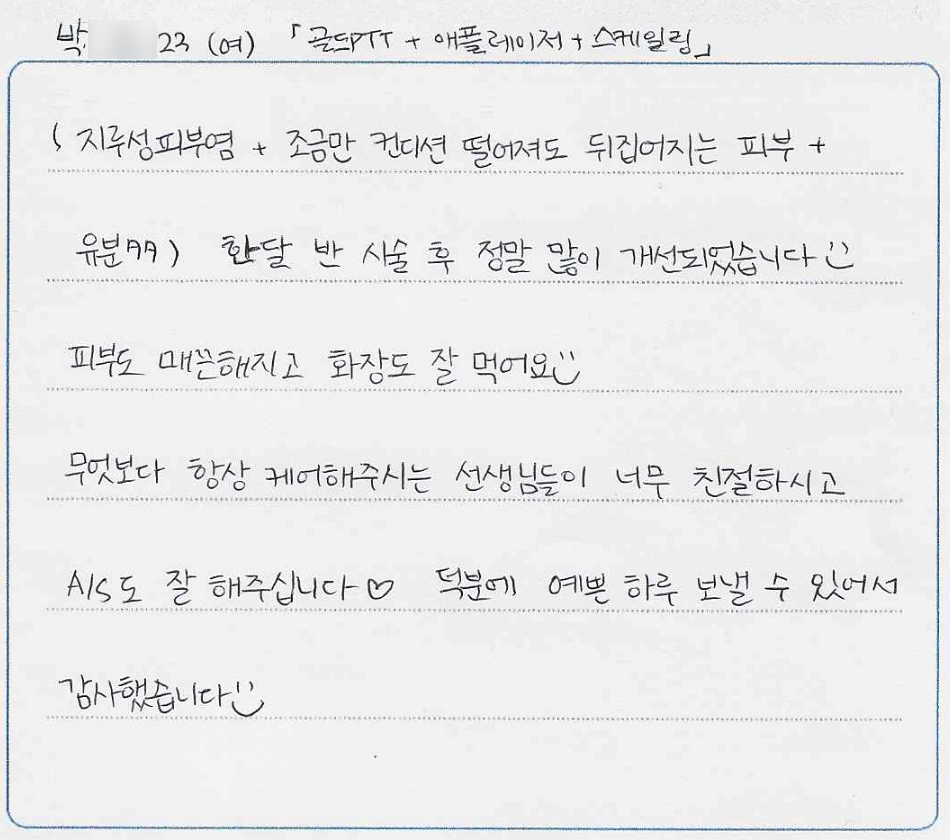 박 23 (여) 「골드PTT + 애플레이저 + 스케일링」
( 지루성피부염 + 조금만 컨디션 떨어져도 뒤집어지는 피부 +
유분ㅋㅋ) 한달 반 시술 후 정말 많이 개선되었습니다 :)
피부도 매끈해지고 화장도 잘 먹어요 :)
무엇보다 항상 케어해주시는 선생님들이 너무 친절하시고
A/S도 잘 해주십니다♡ 덕분에 예쁜 하루 보낼 수 있어서
감사했습니다 :)